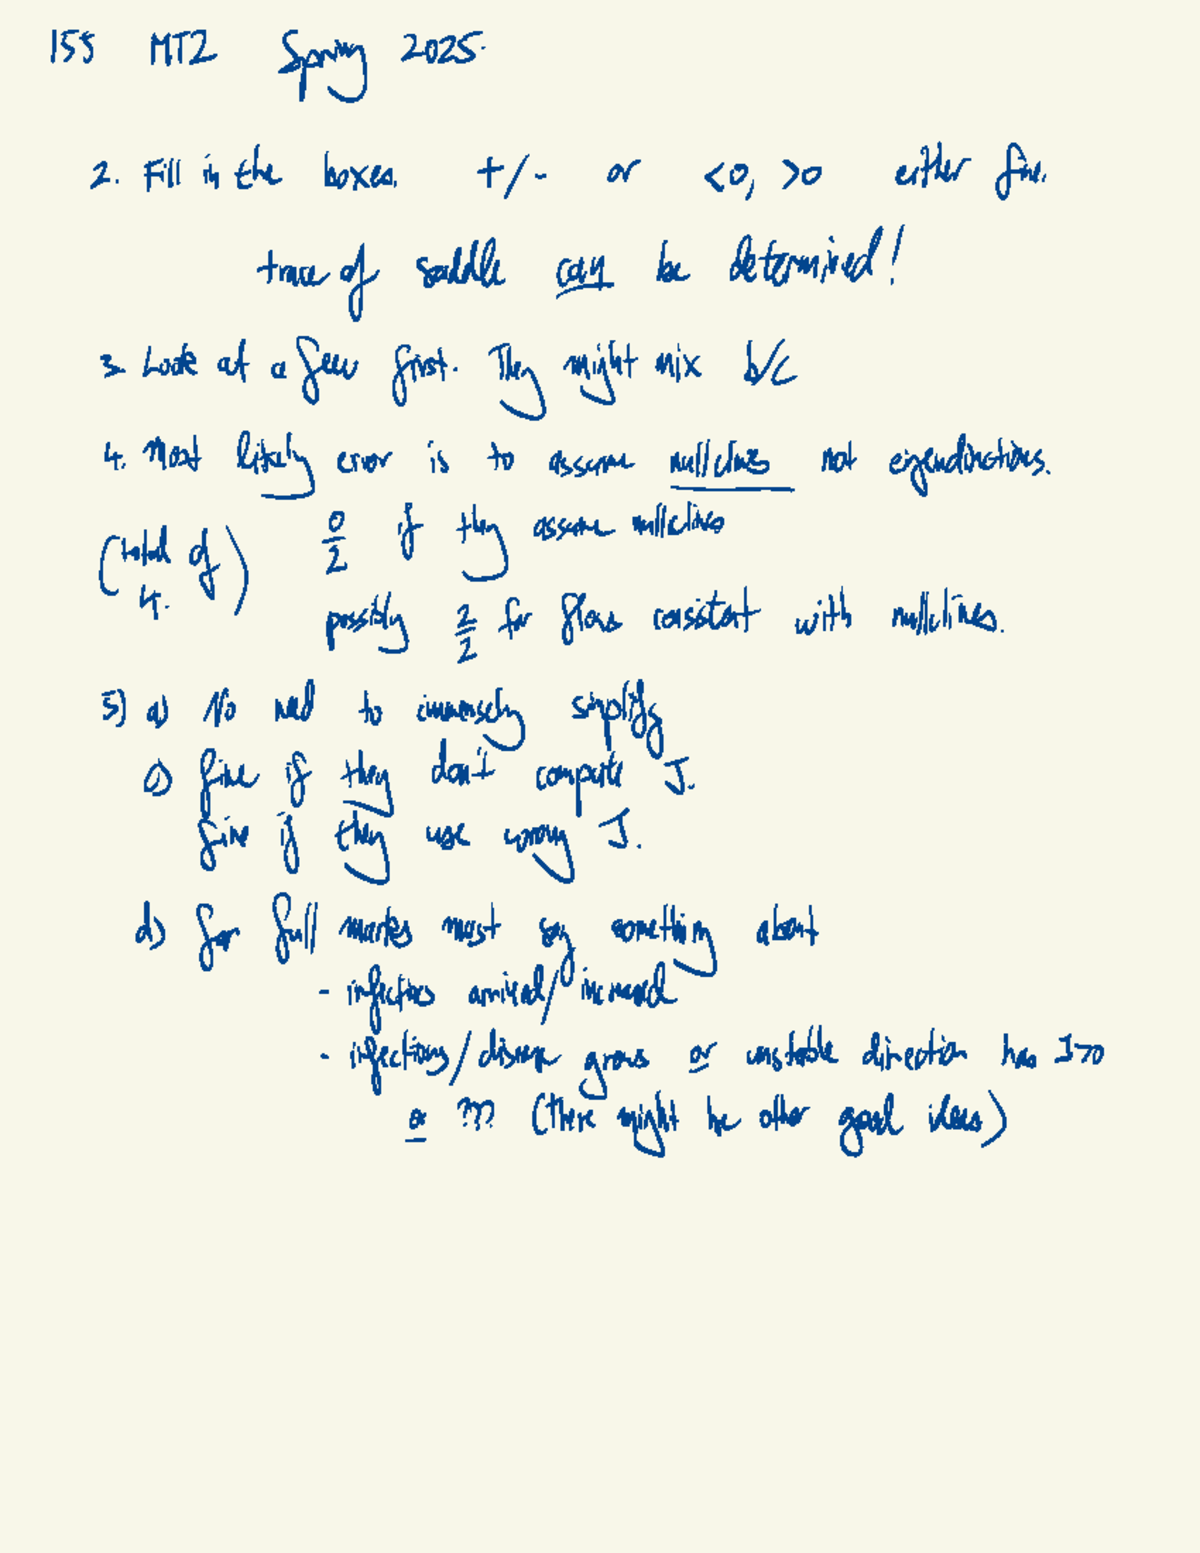 155 MT2 Spring 2025.
2. Fill in the boxes. +/- or <0, >0 either fine.
trace of saddle can be determined!
3. Look at a few first. They might mix b/c
4. Most likely error is to assume nullclines not eigendirections.
(total of 4.) 0/2 if they assume nullclines
possibly 2/2 for flows consistent with nullclines.
5) a) No need to immensely simplify
c) fine if they don't compute J.
fine if they use wrong J.
d) for full marks must say something about
- infections arrived/increased
- infections/disease grows or unstable direction has I>0
or ??? (there might be other good ideas)